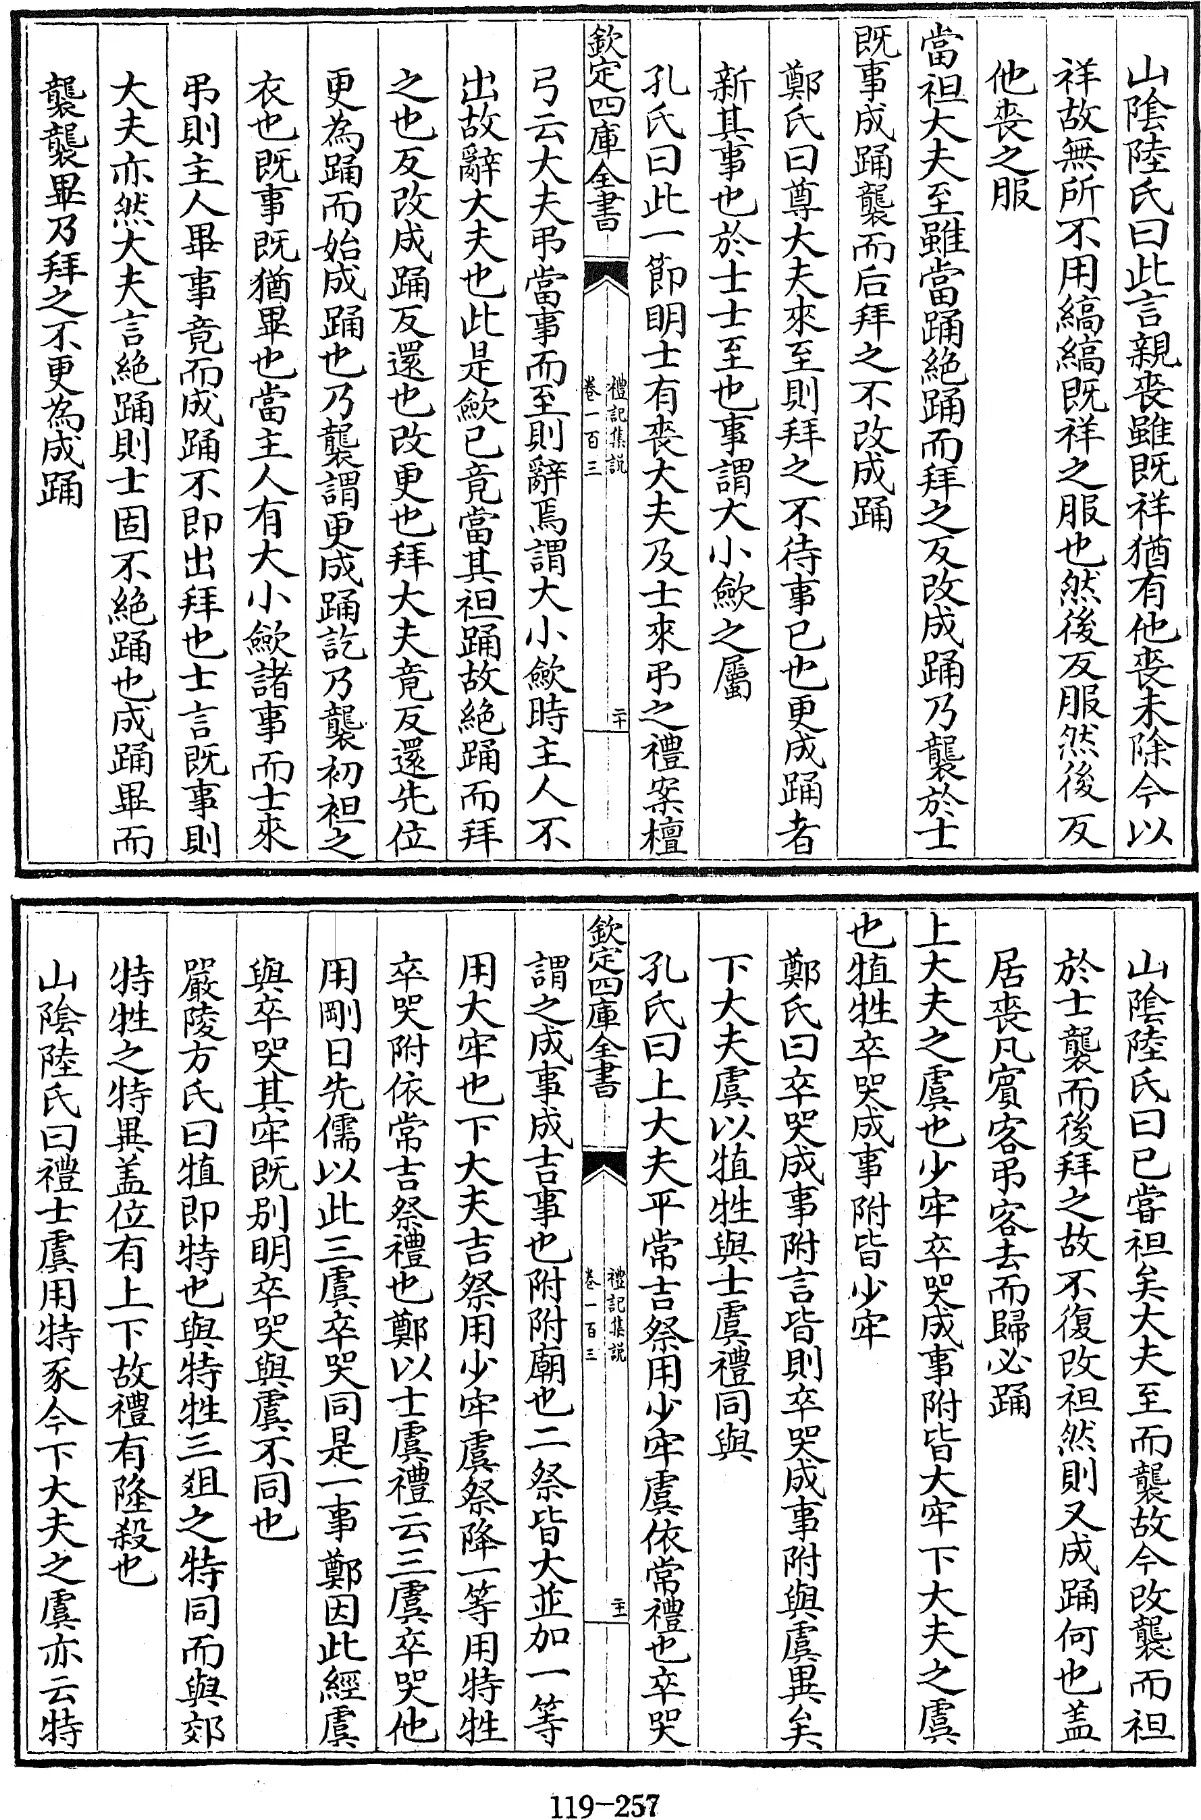 山隂陸氏曰此言親喪雖既祥猶有他喪未除今以
祥故無所不用縞縞既祥之服也然後反服然後反
他喪之服
當袒大夫至雖當踊絶踊而拜之反改成踊乃襲於士
既事成踊襲而后拜之不改成踊
鄭氏曰尊大夫來至則拜之不待事已也更成踊者
新其事也於士士至也事謂大小歛之屬
孔氏曰此一節明士有喪大夫及士來弔之禮案檀
欽定四庫全書
禮記集説
卷一百三
二十
弓云大夫弔當事而至則辭焉謂大小歛時主人不
出故辭大夫也此是歛已竟當其袒踊故絶踊而拜
之也反改成踊反還也改更也拜大夫竟反還先位
更為踊而始成踊也乃襲謂更成踊訖乃襲初袒之
衣也既事既猶畢也當主人有大小歛諸事而士來
弔則主人畢事竟而成踊不即出拜也士言既事則
大夫亦然大夫言絶踊則士固不絶踊也成踊畢而
襲襲畢乃拜之不更為成踊
山隂陸氏曰已嘗袒矣大夫至而襲故今改襲而袒
於士襲而後拜之故不復改袒然則又成踊何也盖
居喪凡賓客弔客去而歸必踊
上大夫之虞也少牢卒哭成事附皆大牢下大夫之虞
也犆牲卒哭成事附皆少牢
鄭氏曰卒哭成事附言皆則卒哭成事附與虞異矣
下大夫虞以犆牲與士虞禮同與
孔氏曰上大夫平常吉祭用少牢虞依常禮也卒哭
欽定四庫全書
禮記集説
卷一百三
二十一
謂之成事成吉事也附附廟也二祭皆大並加一等
用大牢也下大夫吉祭用少牢虞祭降一等用特牲
卒哭附依常吉祭禮也鄭以士虞禮云三虞卒哭他
用剛日先儒以此三虞卒哭同是一事鄭因此經虞
與卒哭其牢既别明卒哭與虞不同也
嚴陵方氏曰犆即特也與特牲三爼之特同而與郊
特牲之特異盖位有上下故禮有隆殺也
山隂陸氏曰禮士虞用特豕今下大夫之虞亦云特
119-257